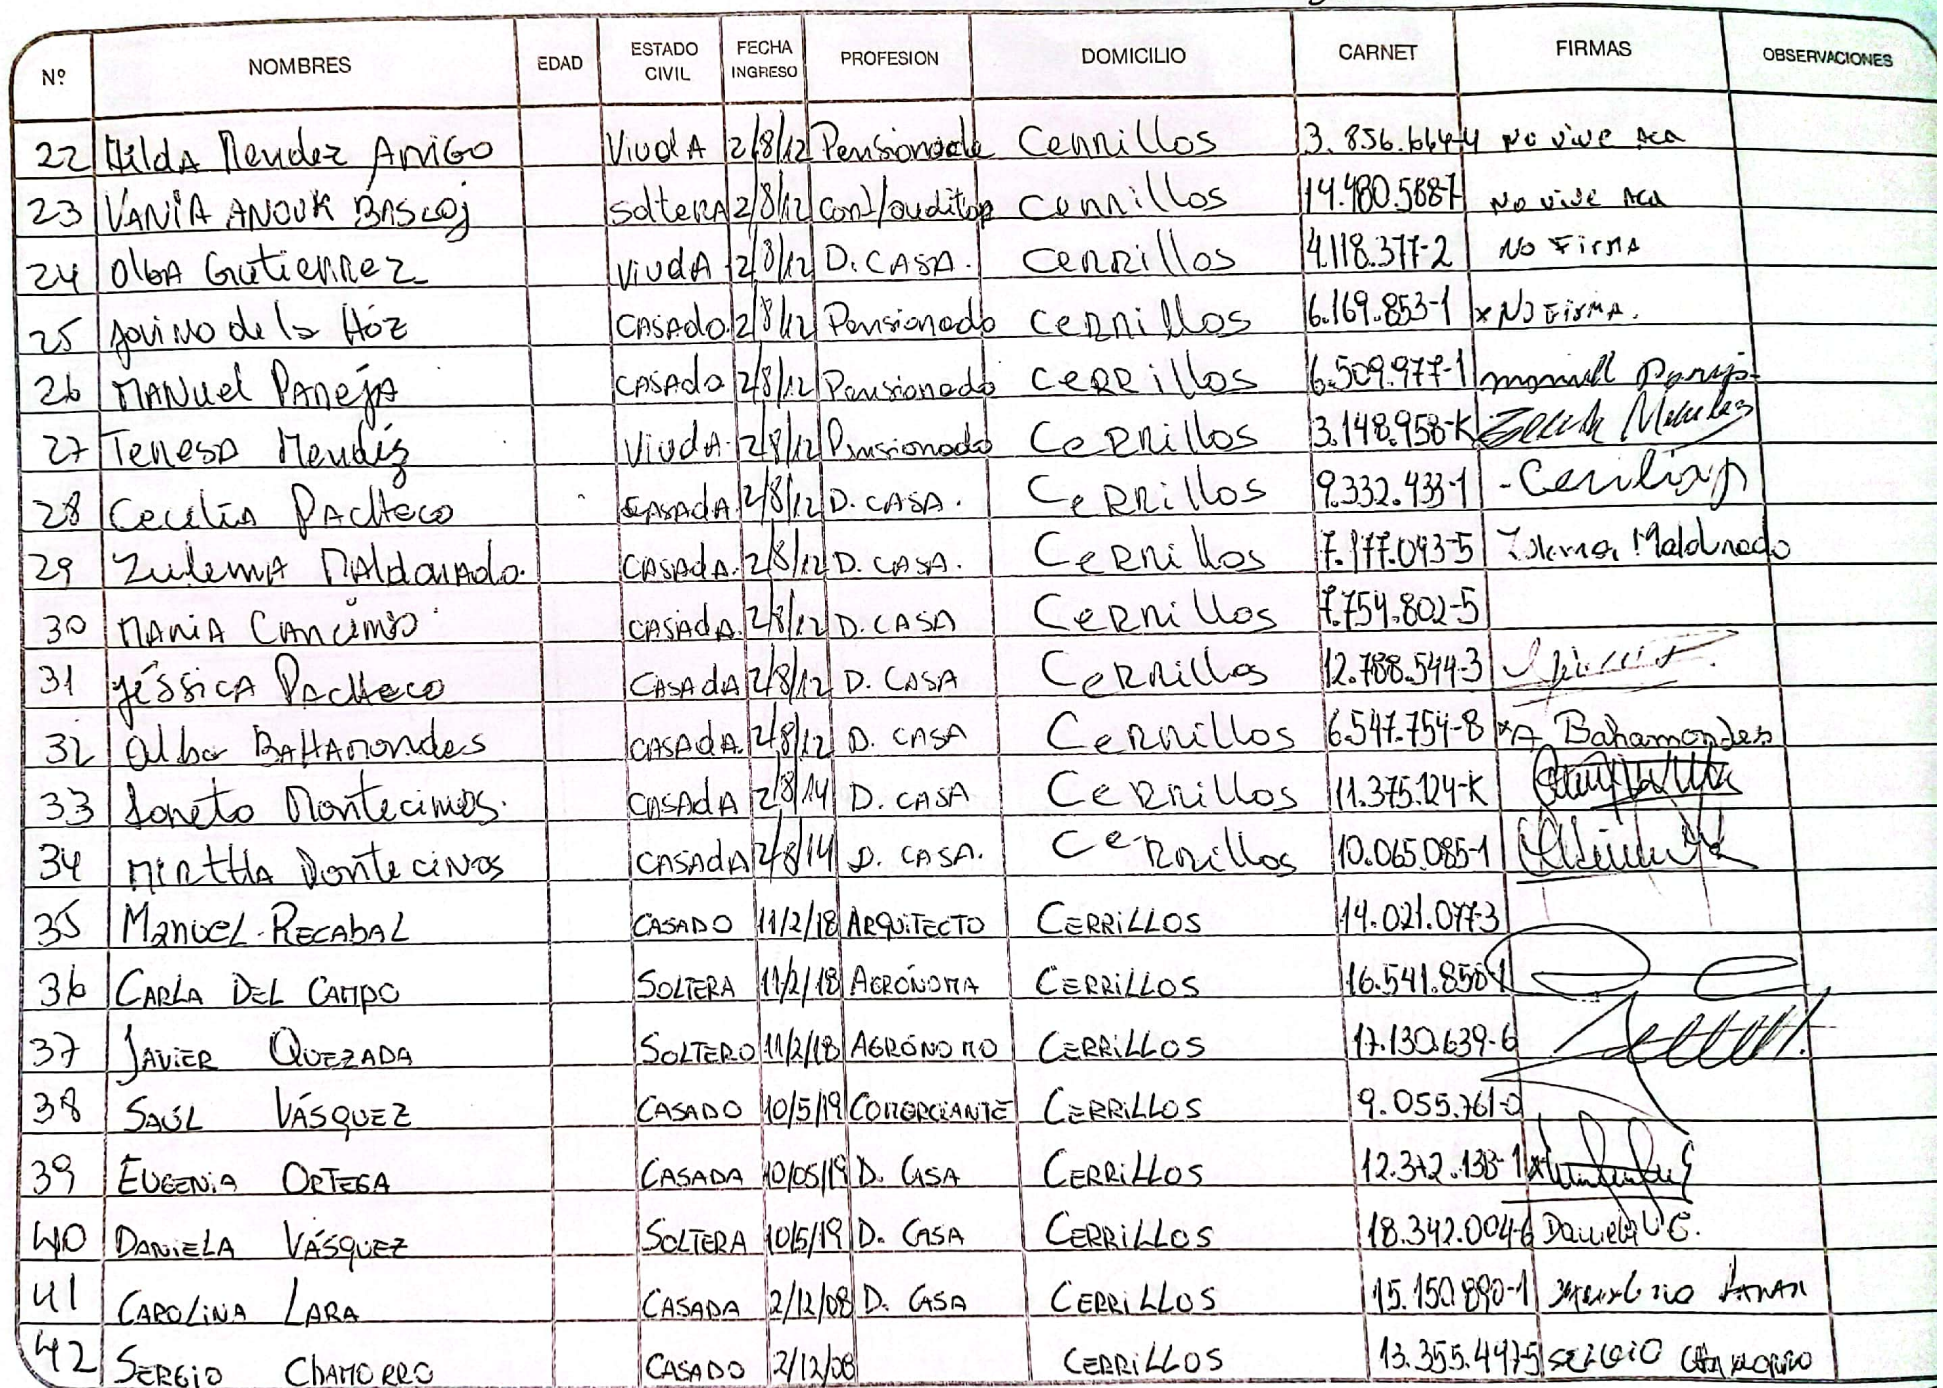 Nº NOMBRES EDAD ESTADO CIVIL FECHA INGRESO PROFESION DOMICILIO CARNET FIRMAS OBSERVACIONES
22 Hilda Mendez Amigo Viuda 2/8/12 Pensionada Cerrillos 3.856.664-4 No vive aca
23 VANIA ANOUK Soltera 2/8/12 Cont/auditor Cerrillos 14.480.588-7 No vive aca
24 Olga Gutierrez Viuda 2/8/12 D. CASA. Cerrillos 4.118.377-2 No Firma
25 Jovino de la Hoz CASADO 2/8/12 Pensionado Cerrillos 6.169.853-1 x No Firma.
26 MANUEL PAREJA CASADO 2/8/12 Pensionado Cerrillos 6.509.977-1 manuel Pareja
27 Teresa Mendez Viuda 2/8/12 Pensionado Cerrillos 3.148.958-K
28 Cecilia Pacheco CASADA 2/8/12 D. CASA. Cerrillos 9.332.433-1 - Cecilia P
29 Zulema Maldonado. CASADA. 2/8/12 D. CASA. Cerrillos 7.177.043-5 Zulema Maldonado
30 MARIA Cancino CASADA. 2/8/12 D. CASA Cerrillos 7.754.802-5
31 Jéssica Pacheco CASADA 2/8/12 D. CASA Cerrillos 12.788.544-3
32 Alba Bahamondes CASADA 2/8/12 D. CASA Cerrillos 6.547.754-8 x A Bahamondes
33 Montecinos. CASADA 2/8/14 D. CASA Cerrillos 11.375.124-K
34 Mirtha Montecinos CASADA 2/8/14 D. CASA. Cerrillos 10.065.085-1
35 Manuel Recabal CASADO 11/2/18 ARQUITECTO CERRILLOS 14.021.077-3
36 CARLA DEL CAMPO SOLTERA 11/2/18 AGRÓNOMA CERRILLOS 16.541.850-1
37 JAVIER QUEZADA SOLTERO 11/2/18 AGRÓNOMO CERRILLOS 17.130.639-6
38 SAÚL VÁSQUEZ CASADO 10/5/19 COMERCIANTE CERRILLOS 9.055.761-0
39 EUGENIA ORTEGA CASADA 10/05/19 D. CASA CERRILLOS 12.372.138-1
40 DANIELA VÁSQUEZ SOLTERA 10/5/19 D. CASA CERRILLOS 18.342.004-6 Daniela V C.
41 CAROLINA LARA CASADA 2/12/08 D. CASA CERRILLOS 15.150.890-1
42 SERGIO CHAMORRO CASADO 2/12/08 CERRILLOS 13.355.447-5 SERGIO CHAMORRO